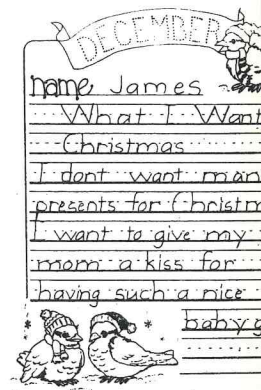 DECEMBER
name James
What I Want
Christmas
I dont want man
presents for Christm
I want to give my
mom a kiss for
having such a nice
baby g